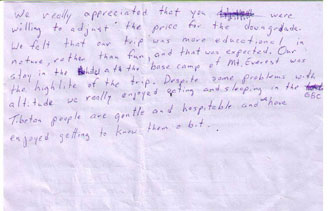 We really appreciated that you were
willing to adjust the price for the downgrade.
We felt that our trip was more educational in
nature, rather than fun, and that was expected. Our
stay in the at the base camp of Mt. Everest was
the highlite of the trip. Despite some problems with
altitude we really enjoyed eating and sleeping in the
ABC
Tibetan people are gentle and hospitable and we have
enjoyed getting to know them a bit...